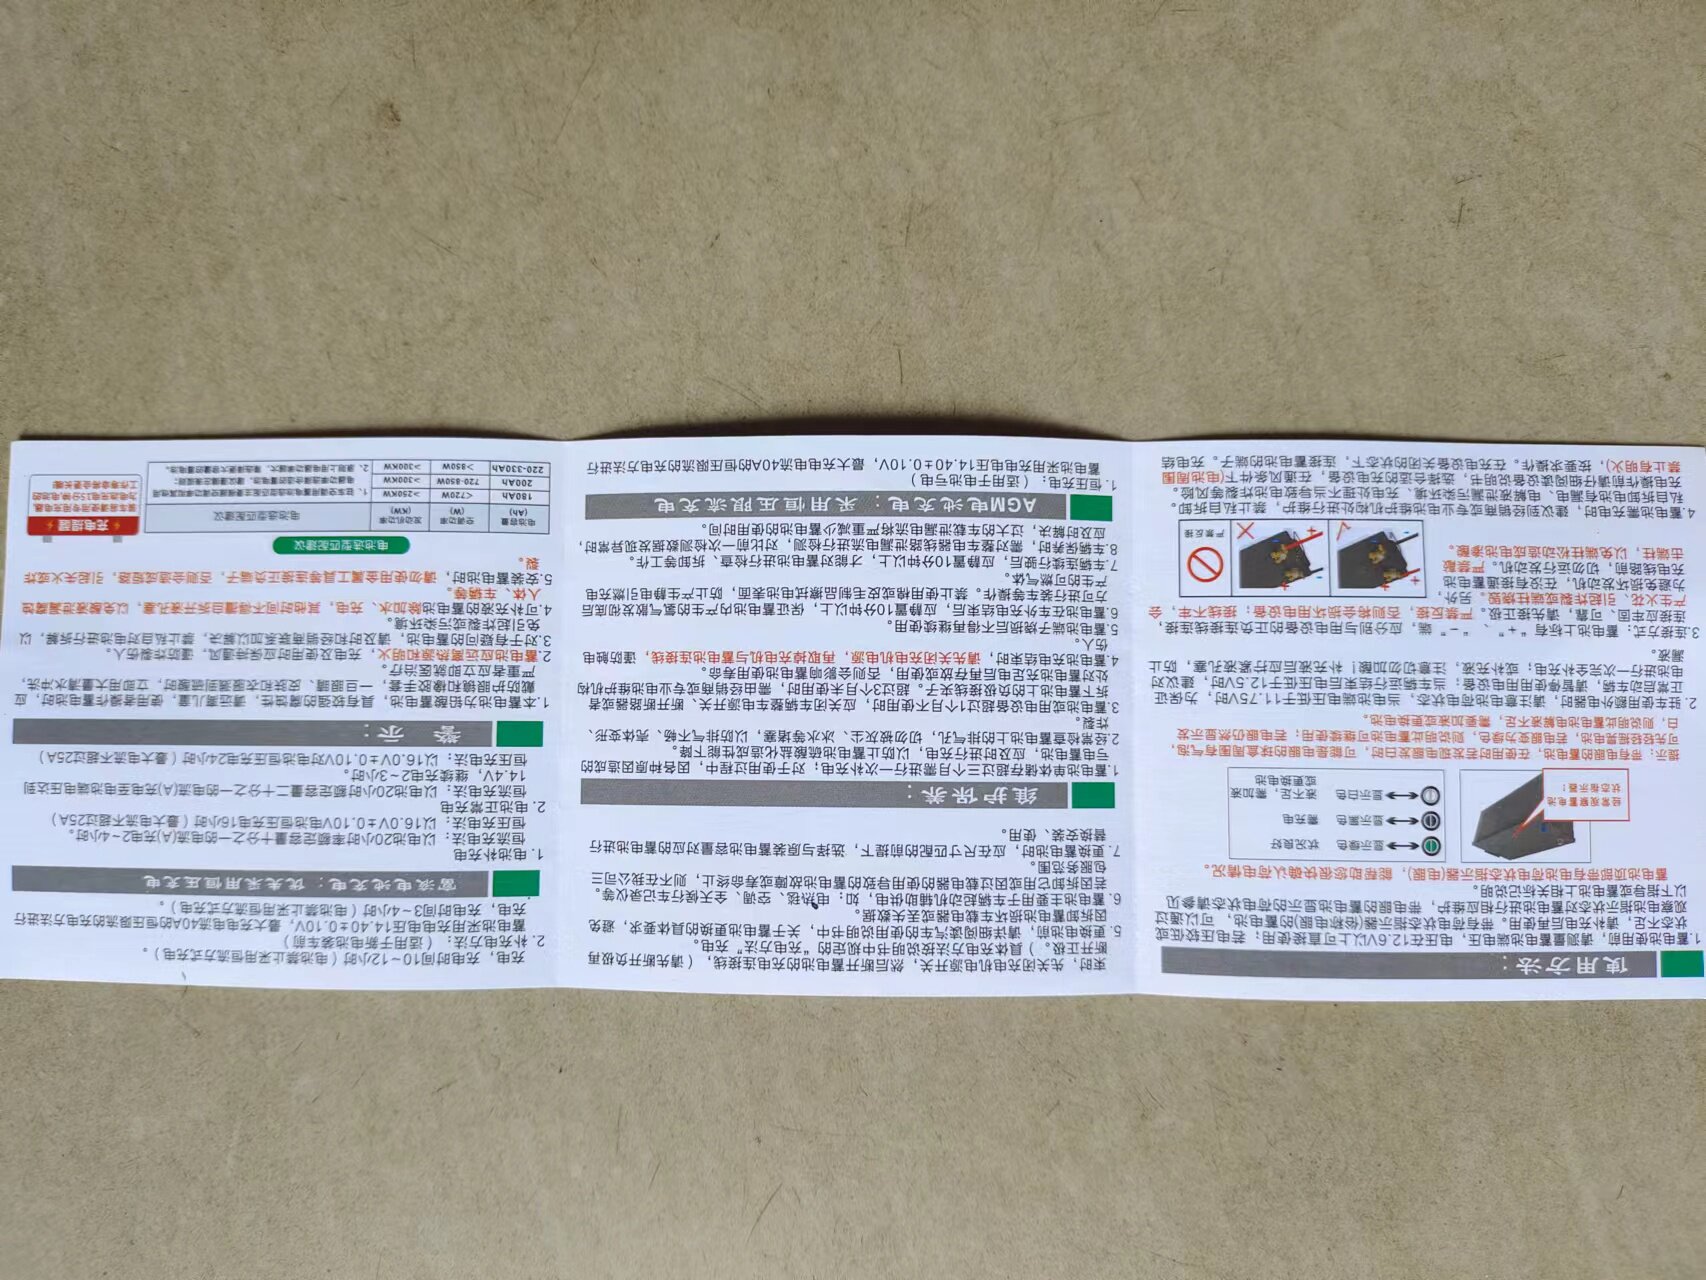 使用方法：
1.蓄电池使用前，请测量蓄电池端电压，电压在12.6V以上可直接使用；若电压较低或
状态不足，请补充电后再使用。带有荷电状态指示器(俗称电眼)的蓄电池，可以通过
观察电池指示状态对蓄电池进行相应维护，带电眼的蓄电池显示的荷电状态请参见
以下指导或蓄电池上相关标记说明。
蓄电池顶部带有电池荷电状态指示器(电眼)，能帮助您很快确认荷电情况。
经常观察电池
状态指示器！
显示绿色 状况良好
显示黑色 需充电
显示白色 液不足，需加液
或更换电池
提示：带有电眼的蓄电池，在使用时若发现电眼发白时，可能是电眼的球盒周围有气泡，
可先轻轻摇晃电池，若电眼变为绿色，则说明此蓄电池可继续使用；若电眼仍然显示发
白，则说明此蓄电池电解液不足，需要加液或更换电池。
2.驻车使用额外电器时，请注意电池荷电状态，当电池端电压低于11.75V时，为保证
正常启动车辆，请暂停使用用电设备；当车辆运行结束后电压低于12.5V时，建议对
电池进行一次完全补充电；或补充液，注意切勿加酸！补充液后应拧紧液孔塞，防止
漏液。
3.连接方式：蓄电池上标有“+”、“-”端，应分别与用电设备的正负连接线连接，
连接应牢固、可靠，请先接正极。严禁反接，否则将会损坏用电设备；接线不牢，会
产生火花，引起炸裂或端柱烧毁。另外，
为避免损坏发动机，在没有接通蓄电池
充电线路前，切勿运行发动机。严禁敲
击端柱，以免端柱松动造成电池渗酸。
严禁反接
4.蓄电池需充电时，建议到经销商或专业电池维护机构处进行维护，禁止私自拆卸。
私自拆卸电池有漏电、电解液泄漏污染环境、充电处理不当导致电池炸裂等风险。
充电操作前请仔细阅读设备说明书，选择合适的充电设备，在通风条件下(电池周围
禁止有明火)，按要求操作。在充电设备关闭的状态下，连接蓄电池的端子。充电结
束时，先关闭充电机电源开关，然后断开蓄电池的充电连接线，（请先断开负极再
断开正极。）具体充电方法按说明书中规定的“充电方法”充电。
5.更换电池前，请详细阅读汽车的使用说明书中，关于蓄电池更换的具体要求，避免
因拆卸蓄电池损坏车载电器或丢失数据。
6.蓄电池主要用于车辆起动机辅助供电，如：电热毯、空调、全天候行车记录仪等。
若因拆卸它用或因过载电器的使用导致的蓄电池故障或寿命终止，则不在我公司三
包服务范围。
7.更换蓄电池时，应在尺寸匹配的前提下，选择与原装蓄电池容量对应的蓄电池进行
替换安装、使用。
维护保养：
1.蓄电池单体储存超过三个月需进行一次补充电；对于使用过程中，因各种原因造成的
亏电蓄电池，应及时进行充电，以防止蓄电池硫酸盐化造成性能下降。
2.经常检查蓄电池上的排气孔，切勿被灰尘、冰水等堵塞，以防排气不畅、壳体变形、
炸裂。
3.蓄电池或用电设备超过1个月不使用时，应关闭车辆整车电源开关、断开断路器或者
拆下蓄电池上的负极接线夹子。超过3个月未使用时，需由经销商或专业电池维护机构
处对蓄电池充足电后再存放或使用，否则会影响蓄电池使用寿命。
4.蓄电池充电结束时，请先关闭充电机电源，再取掉充电机与蓄电池连接线，谨防触电
伤人。
5.蓄电池端子烧损后不得再继续使用。
6.蓄电池在车外充电结束后，应静置10分钟以上，保证蓄电池内产生的氢气散和底后
方可进行装车等操作。禁止使用棉或皮毛制品擦拭电池表面，防止产生静电引燃充电
产生的可燃气体。
7.车辆连续行驶后，应静置10分钟以上，才能对蓄电池进行检查、拆卸等工作。
8.车辆保养时，需对整车电器线路泄漏电流进行检测，对比前一次检测数据发现异常时，
应及时解决，过大的车载泄漏电流将严重减少蓄电池的使用时间。
AGM电池充电：采用恒压限流充电
1.恒压充电：（适用于电池亏电）
蓄电池采用充电电压14.40±0.10V，最大充电电流40A的恒压限流的充电方法进行
充电，充电时间10~12小时（电池禁止采用恒流方式充电）。
2.补充电方法：（适用于新电池装车前）
蓄电池采用充电电压14.40±0.10V，最大充电电流40A的恒压限流的充电方法进行
充电，充电时间3~4小时（电池禁止采用恒流方式充电）。
富液电池充电：优先采用恒压充电
1.电池补充电
恒流充电法：以电池20小时率额定容量十分之一的电流(A)充电2~4小时。
恒压充电法：以16.0V±0.10V电池恒压充电16小时（最大电流不超过25A）
2.电池正常充电
恒流充电法：以电池20小时额定容量二十分之一的电流(A)充电至电池端电压达到
14.4V，继续充电2~3小时。
恒压充电法：以16.0V±0.10V对电池恒压充电24小时（最大电流不超过25A）
警示：
1.本蓄电池为铅酸蓄电池，具有较强的腐蚀性，请远离儿童，使用者操作蓄电池时，应
戴防护眼镜和橡胶手套，一旦眼睛、皮肤和衣服遇到硫酸时，立即用大量清水冲洗，
严重者应立即就医治疗。
2.蓄电池应远离热源和明火，充电及使用时应保持通风，谨防炸裂伤人。
3.对于有疑问的蓄电池，请及时和经销商联系加以解决，禁止私自对电池进行拆解，以
免引起炸裂或污染环境。
4.可补充液的蓄电池除加水、充电，其他时间不得擅自拆开液孔塞，以免酸液泄漏腐蚀
人体、车辆等。
5.安装蓄电池时，请勿使用金属工具等连接正负端子，否则会造成短路，引起失火或炸
裂。
电池选型匹配建议
电池容量(Ah) 空调功率(W) 发动机功率(KW) 电池选型匹配建议
180Ah <720W >250KW
200Ah 720-850W >300KW
220-330Ah >850W >300KW
充电提醒